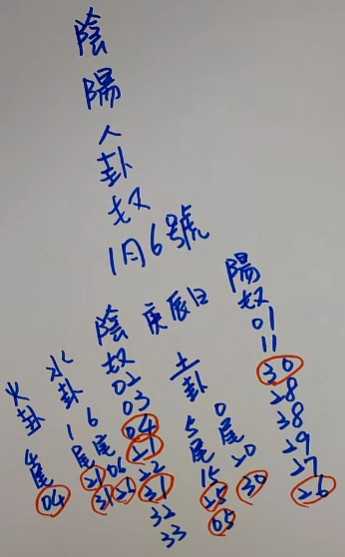 陰陽人卦奴
1月6號
庚辰日
陽奴 01 11 30 28 38 29 27 26
土卦
0尾 20 30
5尾 15 25 05
陰奴 02 03 04 21 22 31 32 33
水卦
6尾 06 26
1尾 21 31
火卦
4尾 04